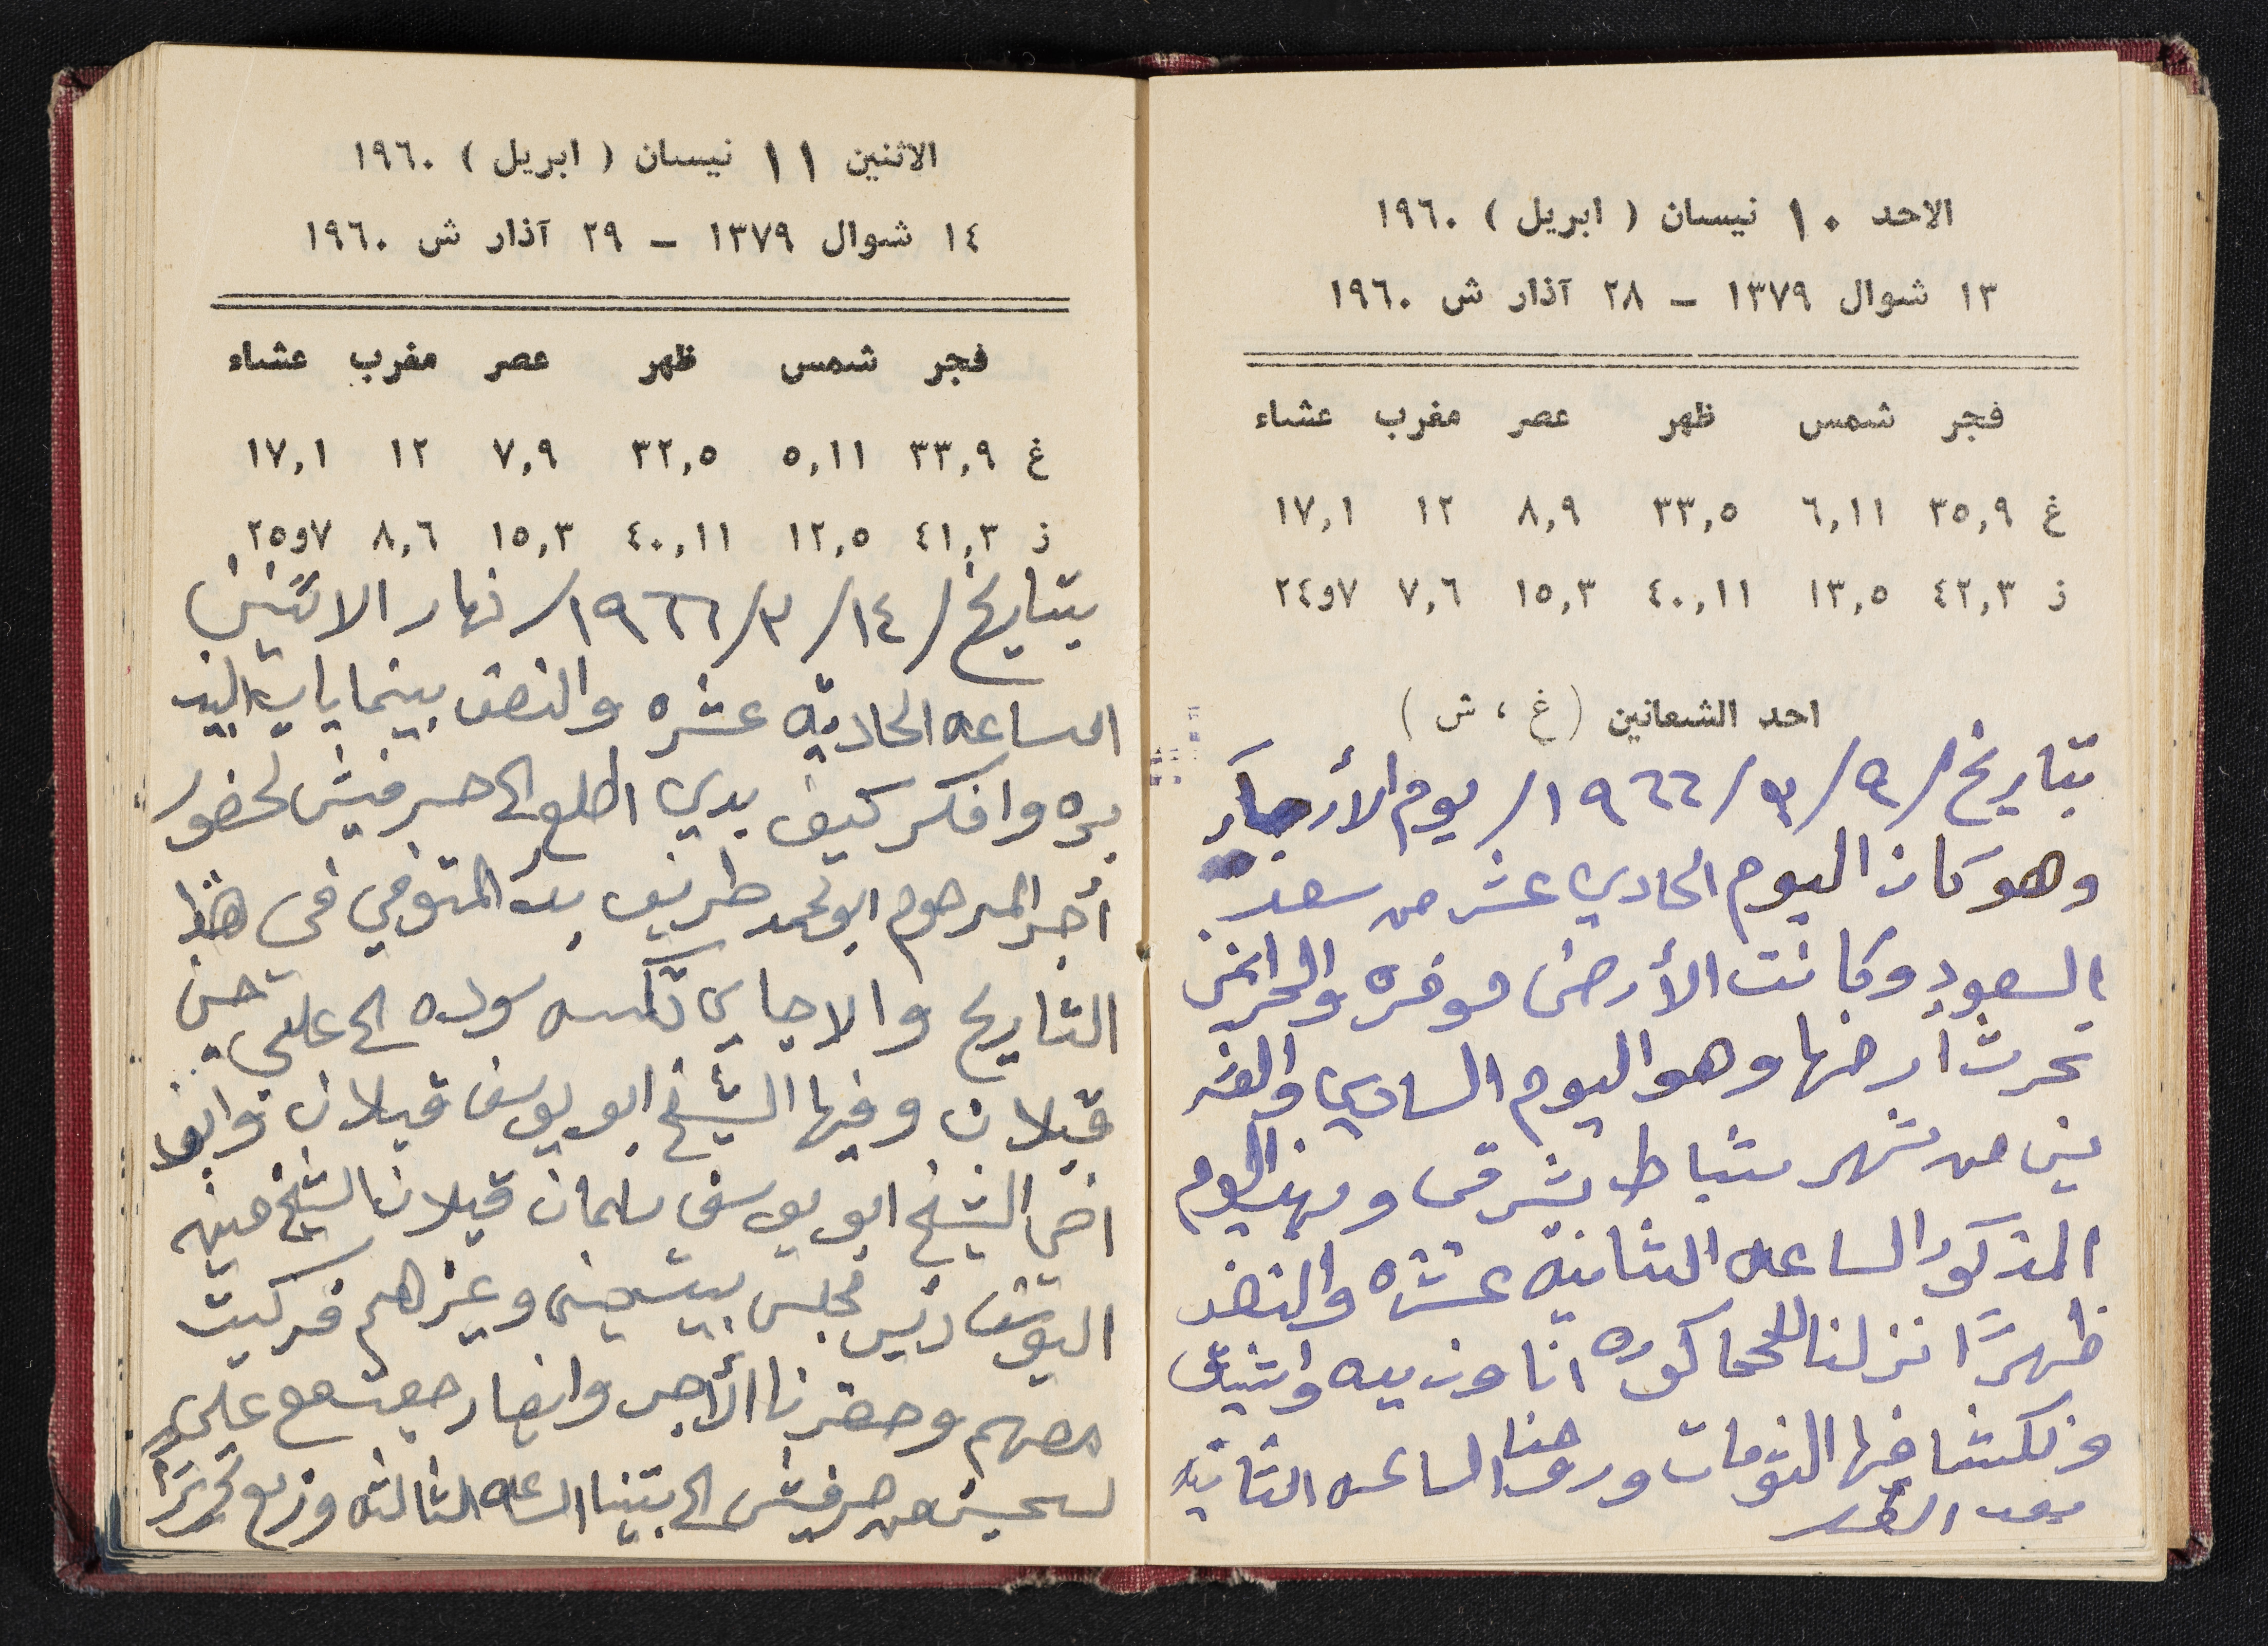 الاحد ١٠ نيسان ( ابريل ) ١٩٦٠
١٣ شوال ١٣٧٩ – ٢٨ آذار ش ١٩٦٠
فجر شمس ظهر عصر مغرب عشاء
غ ٣٥,٩ ٦,١١ ٣٣,٥ ٨,٩ ١٢ ١٧,١
ز ٤٢,٣ ١٣,٥ ٤٠,١١ ١٥,٣ ٧,٦ ٧و٢٤
احد الشعانين (غ ، ش)
بتاريخ /٩/٣/١٩٦٦/ يوم الأربعاء
وهو كان اليوم الحادي عشر من سعد
السعود وكانت الأرض موفره والحراثين
تحرث أرضها وهو اليوم السادس والعشر
ين من شهر شباط شرقي وبهذا اليوم
المذكور الساعه الثانيه عشره والنصف
ظهرًا نزلنا للحاكوره انا وزبيه
ونكشنا فيها الثومات وروحنا الساعه الثانيه
بعد الظهر
الاثنين ١١ نيسان ( ابريل ) ١٩٦٠
١٤ شوال ١٣٧٩ – ٢٩ آذار ش ١٩٦٠
فجر شمس ظهر عصر مغرب عشاء
غ ٣٣,٩ ٥,١١ ٣٢,٥ ٧,٩ ١٢ ١٧,١
ز ٤١,٣ ١٢,٥ ٤٠,١١ ١٥,٣ ٨,٦ ٧و٢٥
بتاريخ /١٤/٣/١٩٦٦/ نهار الاثنين
الساعه الحاديه عشره والنصف بينما
بره وافكر كيف بدي اطلع الى حرفيش لحضور
أجر المرحوم ابو محمد طريف المتوفي في هذا
التاريخ والا جاي تكسه سوده الى علي حسن
قبلان وفيها الشيخ ابو يوسف قبلان وابن
اخي الشيخ ابو يوسف سلمان قبلان الشيخ
اليوسف رئيس مجلس بيت جن وغيرهم فركبت
معهم وحضرنا الأجر وانها رجعت مع علي
لحسين من حرفيش الى بيتنا الساعه الثالثه وربع